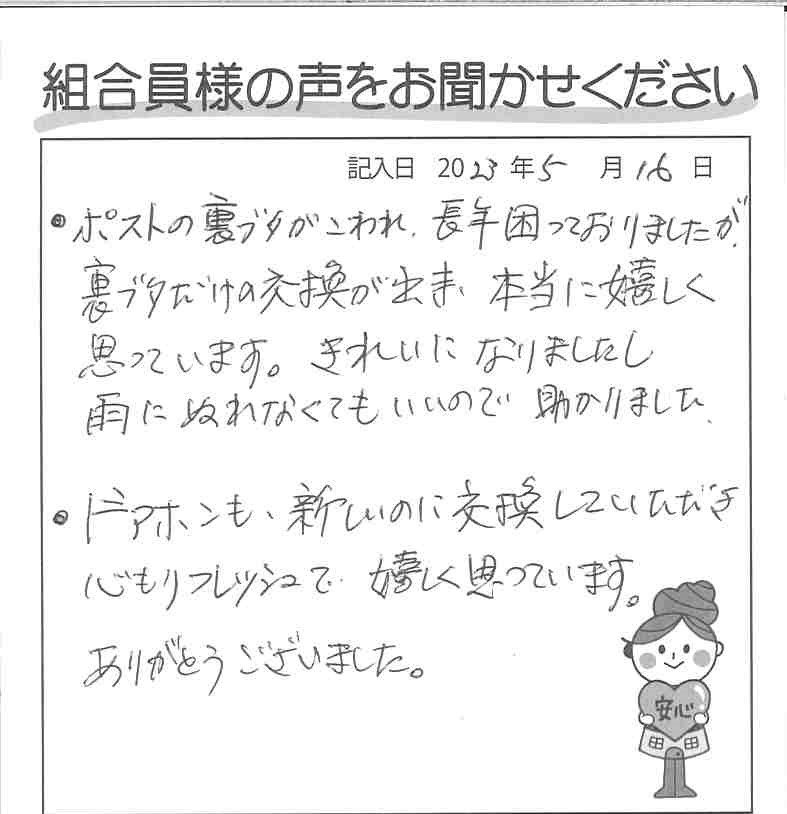 組合員様の声をお聞かせください
記入日 2023年5月16日
・ポストの裏ブタがこわれ、長年困っておりましたが、
裏ブタだけの交換が出来、本当に嬉しく
思っています。きれいになりましたし
雨にぬれなくてもいいので助かりました。
・ドアホンも、新しいのに交換していただき
心もリフレッシュで、嬉しく思っています。
ありがとうございました。
安心